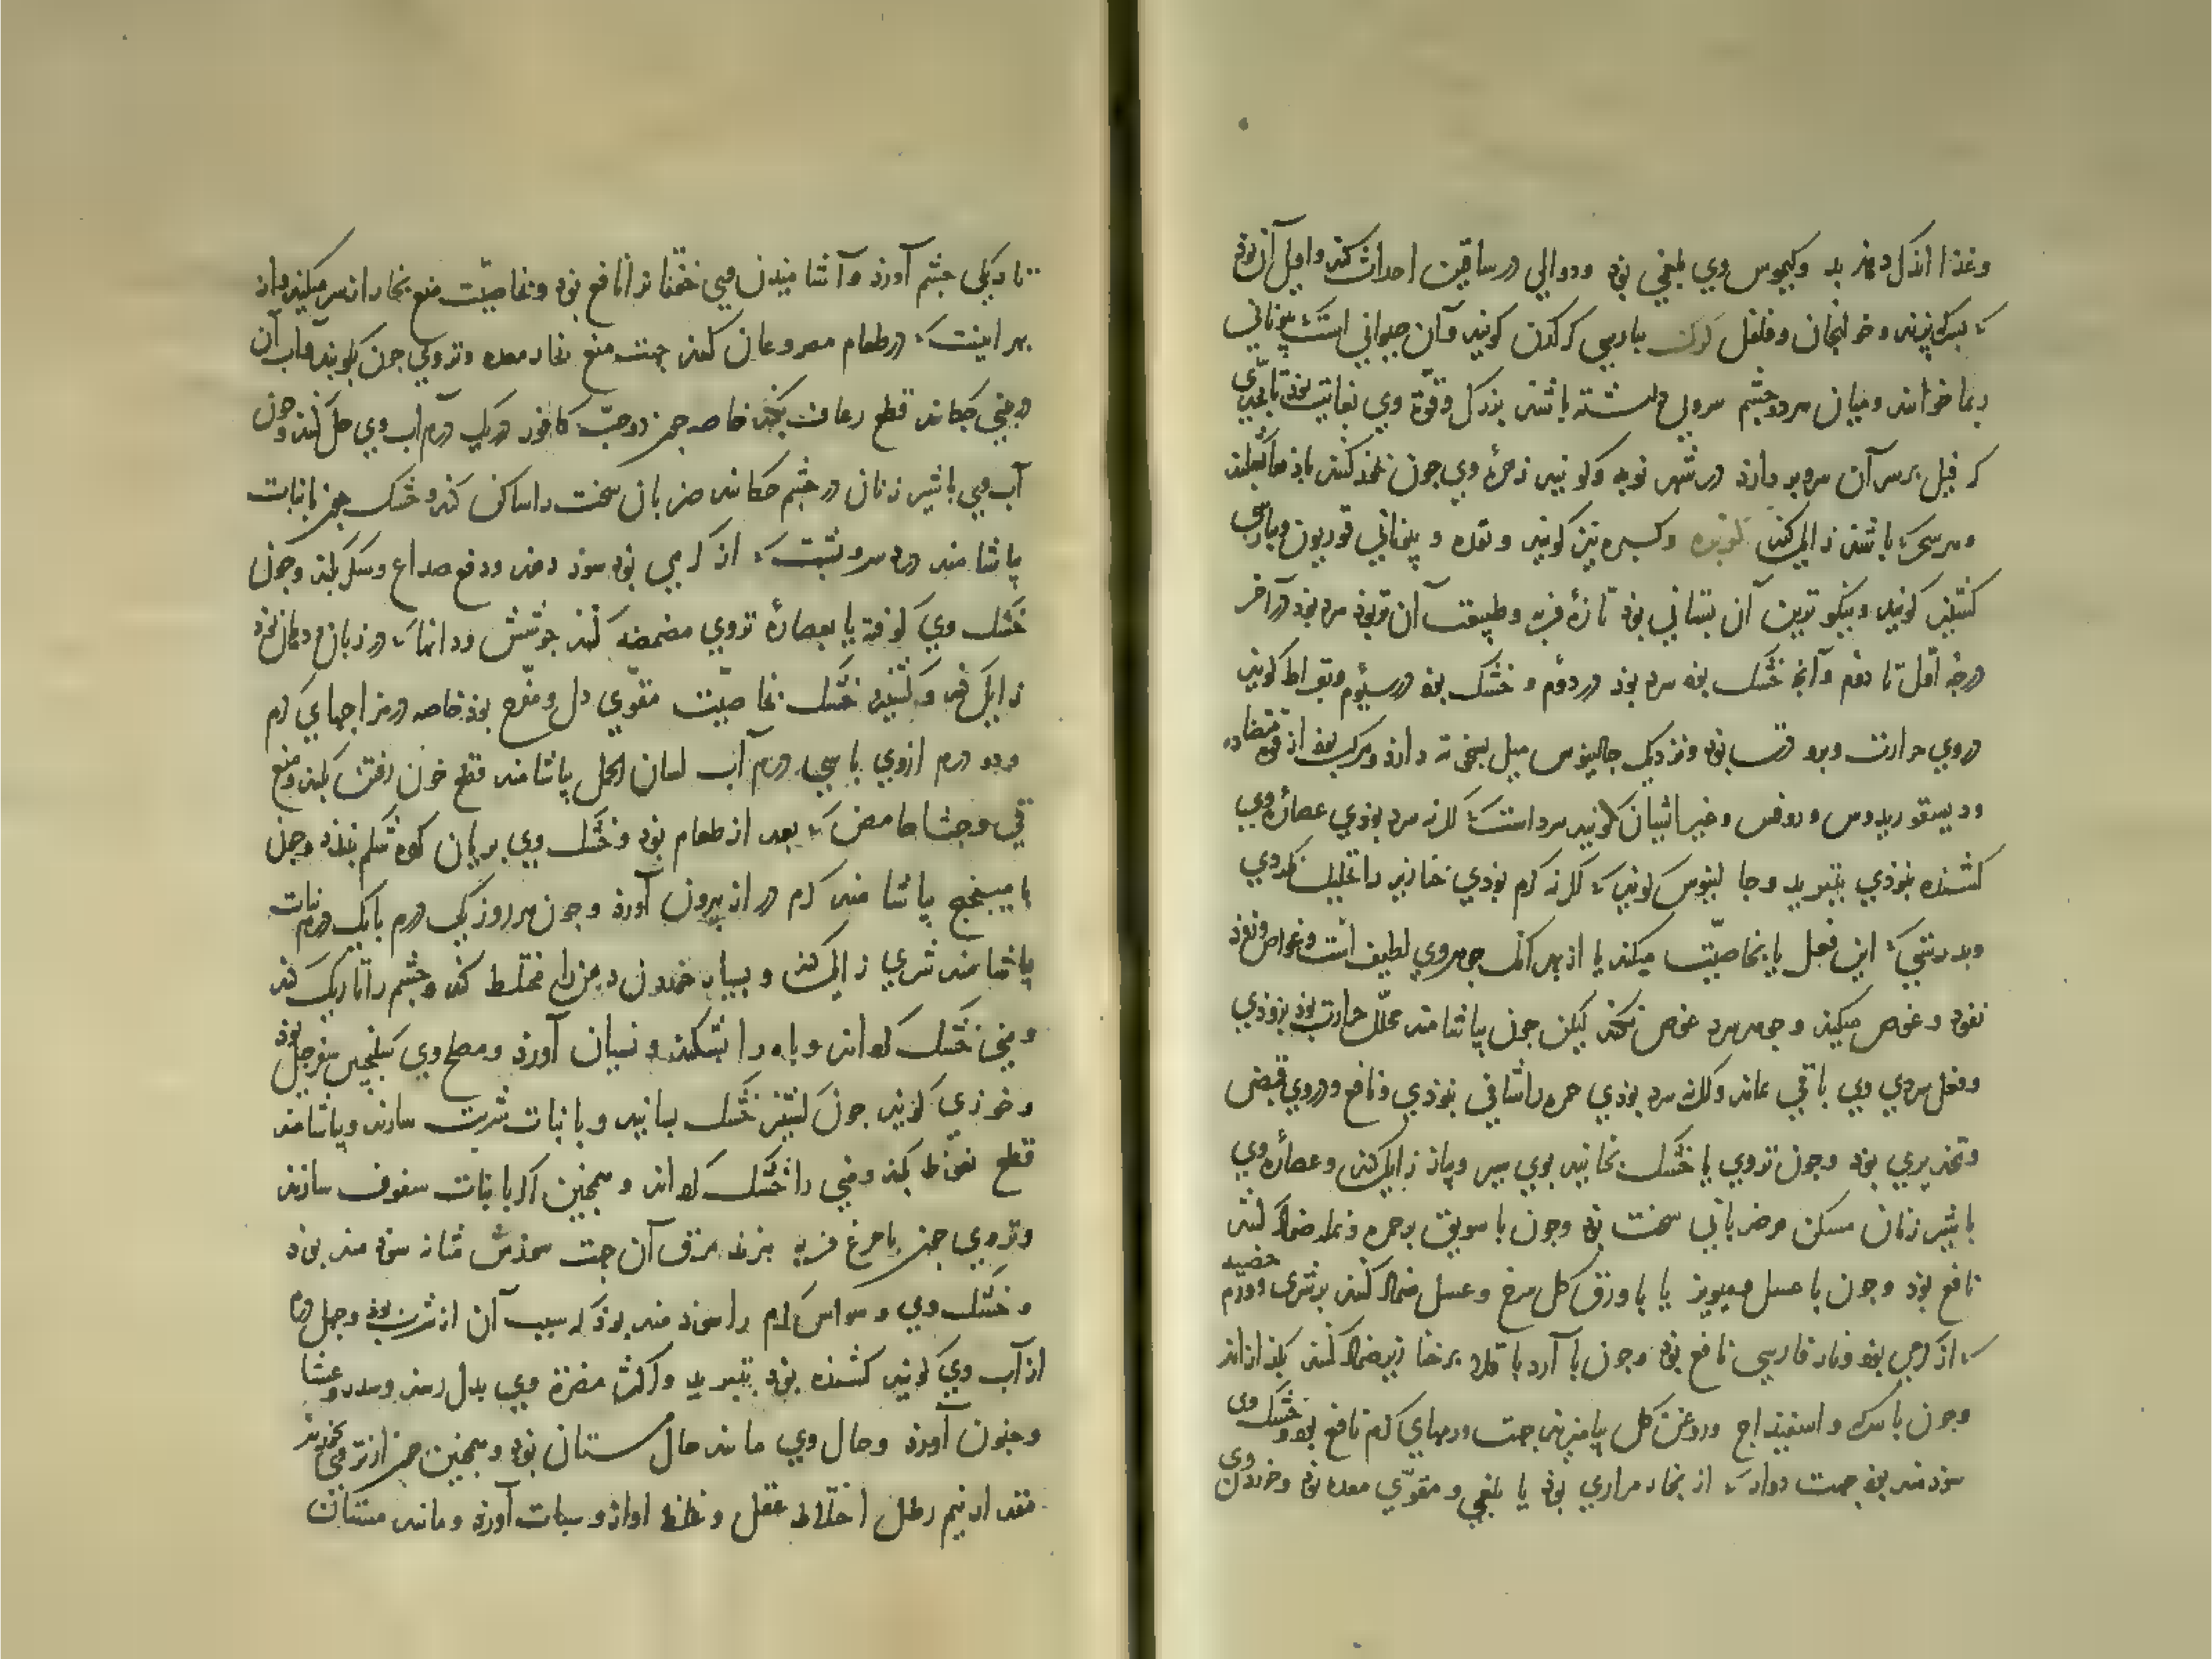 وغذا اندک دهد بد و کیموس وی بلغمی بود و دوالی در ساقین احداث کند واولی آن بود
که بسرکه پزند و خولنجان و فلفل کرک بپارسی کرکدن گویند و آن حیوانی است که بیونانی
ریما خوانند و میان هر دو چشم سروی داشته باشد بزرگ و قوة وی بغایت بود تا بحدی
که فیل بر سر آن سرو بر دارد در شهر نوبه و گویند زهرۀ وی چون بخور کنند باد
و هر سحر که باشد زایل کند کزبره و کسبره نیز گویند و تقده و بیونانی قوریون و بپارسی
کشنیز گویند و نیکوترین آن بستانی بود تازۀ فربه و طبیعت آن تر بود سرد بود در آخر
درجه اول تا دوم و آنچه خشک بود سرد بود در دوم و خشک بود در سیوم و بقراط گویند
در وی حرارت و برودت بود و نزدیک جالینوس میل بسخونه دارد و مرکب بود از قوة متضاده
و دیسقوریدوس و روفس و غیر ایشان گویند سرد است که اگر نه سرد بودی عصارۀ وی
کشنده نبودی بتبرید و جالینوس گوید که اگر نه گرم بودی خنازیر را تحلیل نکردی
و بدرستی که این فعل یا بخاصیت میکند یا از بهر آنک جوهر وی لطیف است وغواص و نفوذ
نفوذ و غوص میکند و جوهر سرد غوص نکند لیکن چون بیاشامند محلل حرارت بود بزودی
و فعل سردی وی باقی ماند و اگر نه سرد بودی حمره را شافی نبودی و نافع و در وی قبض
و تخدیری بود و چون تر وی یا خشک بخایند بوی سیر و پیاز زایل کند و عصارۀ وی
با شیر زنان مسکن هر ضربانی سخت بود و چون با سویق بر حمره و نمله ضماد کنند
نافع بود و چون با عسل و مویز یا با ورق گل سرخ و عسل ضماد کنند بر شری و ورم خصیه
که از گرمی بود و نار فارسی نافع بود و چون با آرد باقلا بر خنازیر ضماد کنند بگدازاند
و چون با سرکه و اسفیداج و روغن گل بیامیزند جهت ورمهای گرم نافع بود و خشک وی
سودمند بود جهت دوار که از بخار مراری بود یا بلغمی و مقوی معده بود و خوردن وی
تاریکی چشم آورد و آشامیدن وی خفقانرا نافع بود و بخاصیت منع بخار از سر میکند و از
بهر اینست که در طعام مصروعان کنند جهت منع بخار معده و تر وی چون بکوبند و آب آن
در بینی چکانند قطع رعاف بکند خاصه چون دو حبه کافور در یک درم آب وی حل کنند و چون
آب وی با شیر زنان در چشم چکانند ضربان سخت را ساکن کند و خشک چون با نبات
بیاشامند درد سر و تبت که از گرمی بود سود دهد و دفع صداع و سکر بکند و چون
خشک وی کوفته یا بعصارۀ تر وی مضمضه کنند جوشش و دانها که در زبان و دهان بود
زایل کند و کشنیز خشک بخاصیت مقوی دل و مفرح بود خاصه در مزاجهای گرم
و دو درم از وی با سی درم آب لسان الحمل بیاشامند قطع خون رفتن بکند و منع
قی و جشا حامض که بعد از طعام بود و خشک وی بریان کرده شکم ببندد و چون
با میبختج بیاشامند کرم دراز بیرون آورد و چون هر روز یکی درم با یک درم نبات
بیاشامند شری زایل کند و بسیار خوردن ذهن را مختلط کند و چشم را تاریک کند
و منی خشک گرداند و باه را بشکند و نسیان آورد و مصلح وی سکنجبین سفرجلی بود
و خوزی گوید چون کشنیز خشک بسایند و با نبات شربت سازند و بیاشامند
قطع نعوظ بکند و منی را خشک گرداند و همچنین اگر با نبات سفوف سازند
و تر وی چون با مرغ فربه بپزند مرق آن جهت سوزش مثانه سودمند بود
و خشک وی وسواس گرم را سودمند بود که سبب آن از شرب بود و چهل درم
از آب وی گویند کشنده بود بتبرید و اکثر مضرة وی بدل رسد و سدر و غشا
و جنون آورد و حال وی مانند حال مستان بود و همچنین چون از تر وی بخورند
مقدار نیم رطل اختلاط عقل و غلظ آواز و سبات آورد و مانند مستان